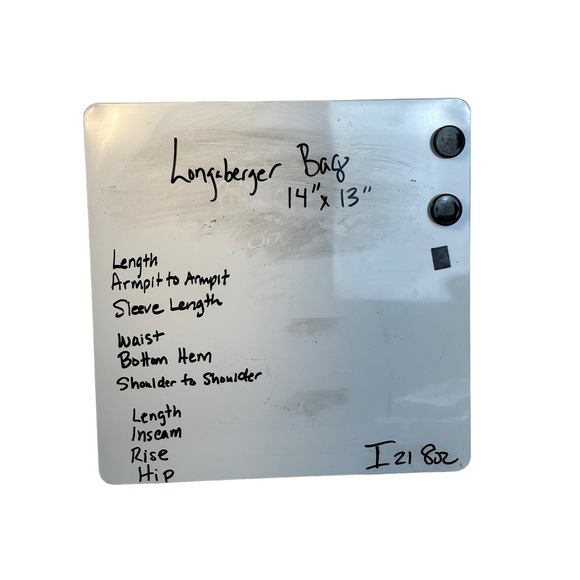 Longaberger Bag
14" x 13"
Length
Armpit to Armpit
Sleeve Length
Waist
Bottom Hem
Shoulder to Shoulder
Length
Inseam
Rise
Hip
I 21 8oz